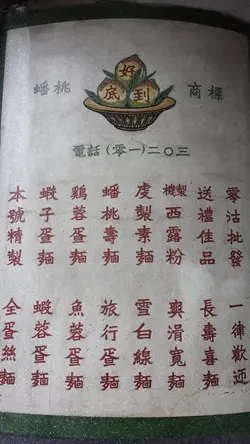 好到底
蟠桃 商標
電話(零一)二〇三
本號精製
全蛋絲麵
蝦子蛋麵
蝦蓉蛋麵
鷄蓉蛋麵
魚蓉蛋麵
蟠桃壽麵
旅行蛋麵
虔製素麵
雪白線麵
機製西露粉
爽滑寬麵
送禮佳品
長壽喜麵
零沽批發
一律歡迎